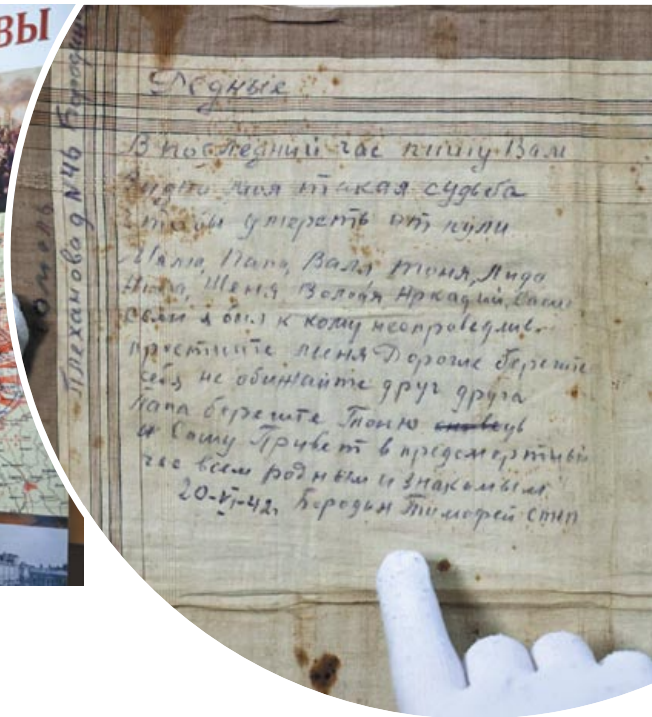 ВЫ
Гомель
Плеханова д №46 Бородин
Родные
В последний час пишу Вам
Видно моя такая судьба
чтобы умереть от пули
Мама, Папа, Валя Тоня, Лида
Женя Володя Аркадий,
если я был к кому несправедлив
простите меня Дорогие берегите
себя не обижайте друг друга
папа берегите Тоню
и Сашу Привет в предсмертный
час всем родным и знакомым
20-VI-42. Бородин Тимофей